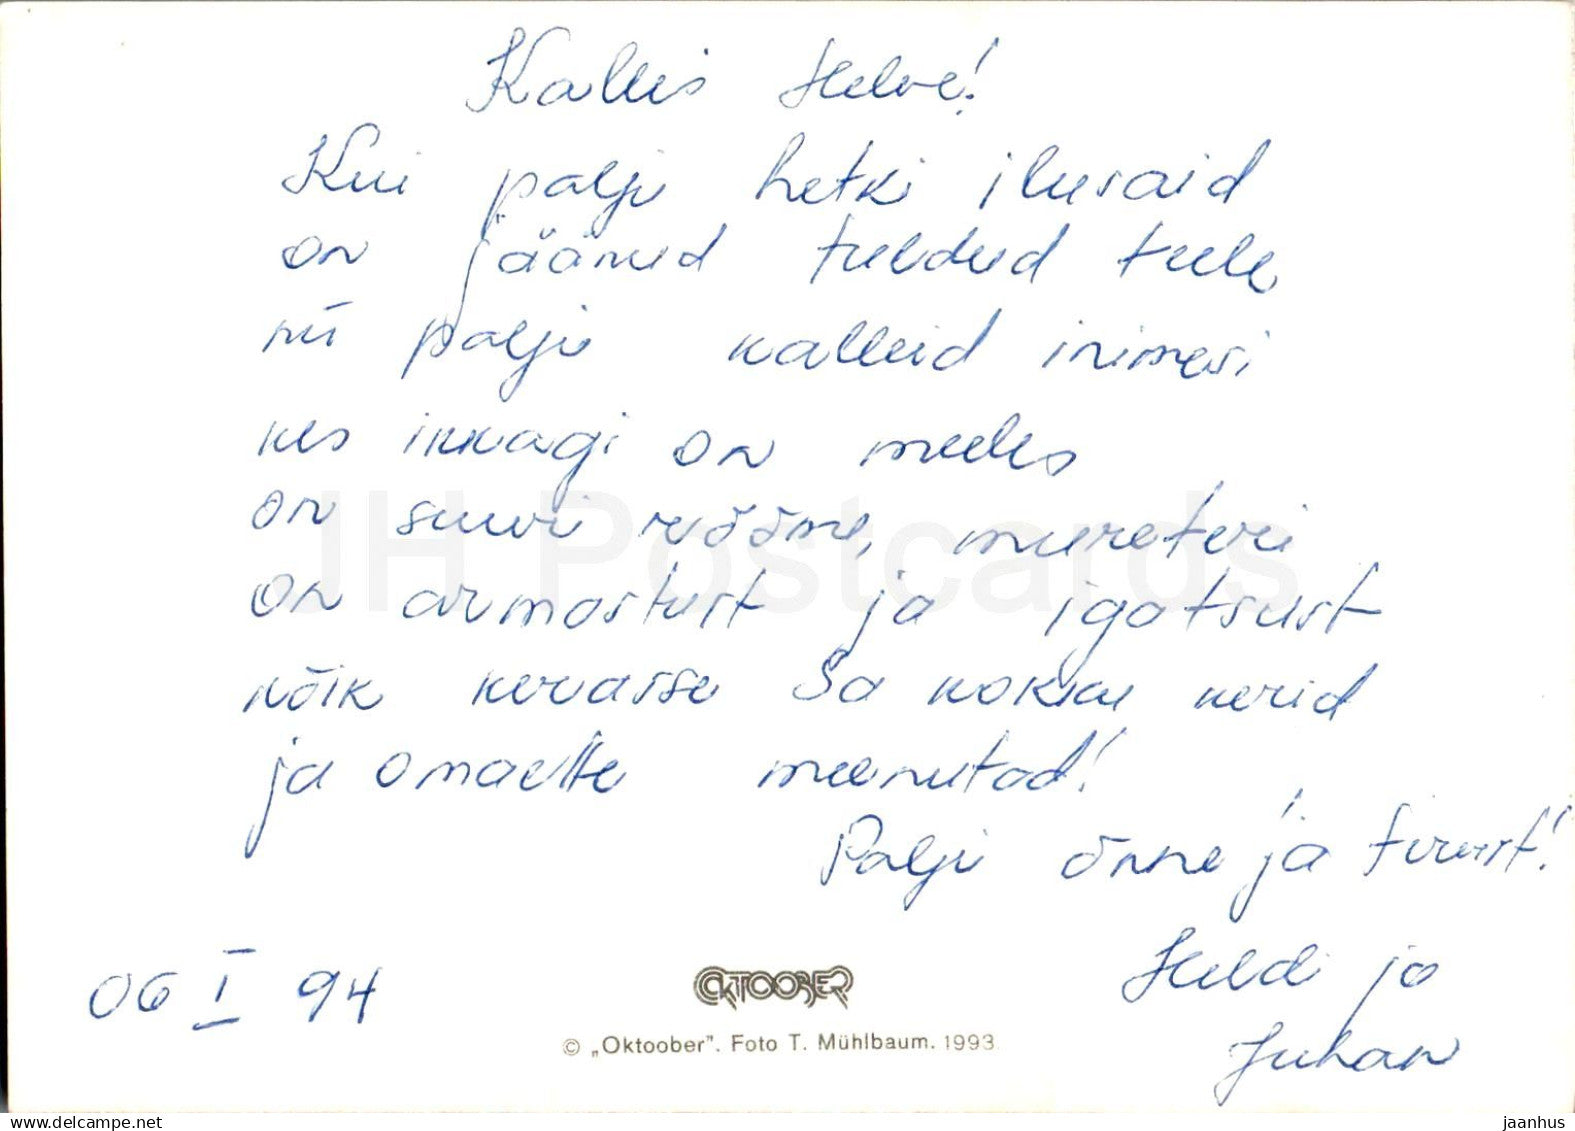 Kallis Helve!
Kui palju hetki ilusaid
on jäänud tuldud teele
nii palju kalleid inimesi
kes ikkagi on meeles
on suuri rõõme, mureteri
on armastust ja igatsust
kõik kerasse Sa kokku kerid
ja omaette meenutad!
Palju õnne ja tervist!
Heldi ja
Juhan
06 I 94
OKTOOBER
© „Oktoober". Foto T. Mühlbaum. 1993
JH Postcards
www.delcampe.net
jaanhus